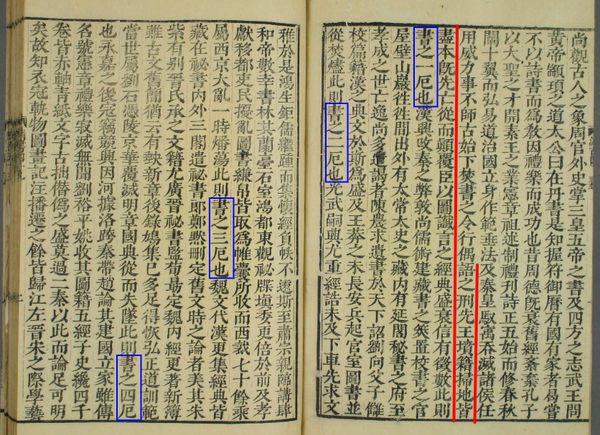 尚觀古人之象周官外史掌三皇五帝之書及四方之志武王問
黃帝顓頊之道太公曰在丹書是知握符御曆有國有家者曷嘗
不以詩書而爲敎因禮樂而成功也昔周德旣衰舊經紊棄孔子
以大聖之才開素王之業憲章祖述制禮刊詩正五始而修春秋
闡十翼而弘易道治國立身作範垂法及秦皇馭㝢吞滅諸侯任
用威力事不師古始下焚書之令行偶語之刑先王墳籍掃地皆
盡本旣先亡從而顛覆臣以圖讖言之經典盛衰信有徵數此則
書之一厄也漢興改秦之弊敦尚儒術建藏書之筴置校書之官
屋壁山巖往往間出外有太常太史之藏內有延閣秘書之府至
孝成之世亡逸尚多遣謁者陳農求遺書於天下詔劉向父子讎
校篇籍漢之典文於斯爲盛及王莽之末長安兵起宮室圖書並
從焚燼此則書之二厄也光武嗣興尤重經誥未及下車先求文
雅於是鴻生鉅儒繼踵而集懷經負帙不遠斯至肅宗親臨講肆
和帝數幸書林其蘭臺石室鴻都東觀祕牒塡委更倍於前及孝
獻移都吏民擾亂圖書縑帛皆取爲帷囊所收而西裁七十餘乘
屬西京大亂一時燔蕩此則書之三厄也魏文代漢更集經典皆
藏在祕書內外三閣遣祕書郎鄭默刪定舊文時之論者美其朱
紫有别晉氏承之文籍尤廣晉祕書監荀勗定魏內經更著新簿
雖古文舊簡猶云有缺新章後錄鳩集已多足得恢弘正道訓範
當世屬劉石憑陵京華覆滅朝章國典從而失墜此則書之四厄
也永嘉之後寇竊競興因河據洛跨秦帶趙論其建國立家雖傳
名號憲章禮樂寂滅無聞劉裕平姚收其圖籍五經子史纔四千
卷皆赤軸靑紙文字古拙僭僞之盛莫過二秦以此而論足可明
矣故知衣冠軌物圖畫記注播遷之餘皆歸江左晉宋之際學藝